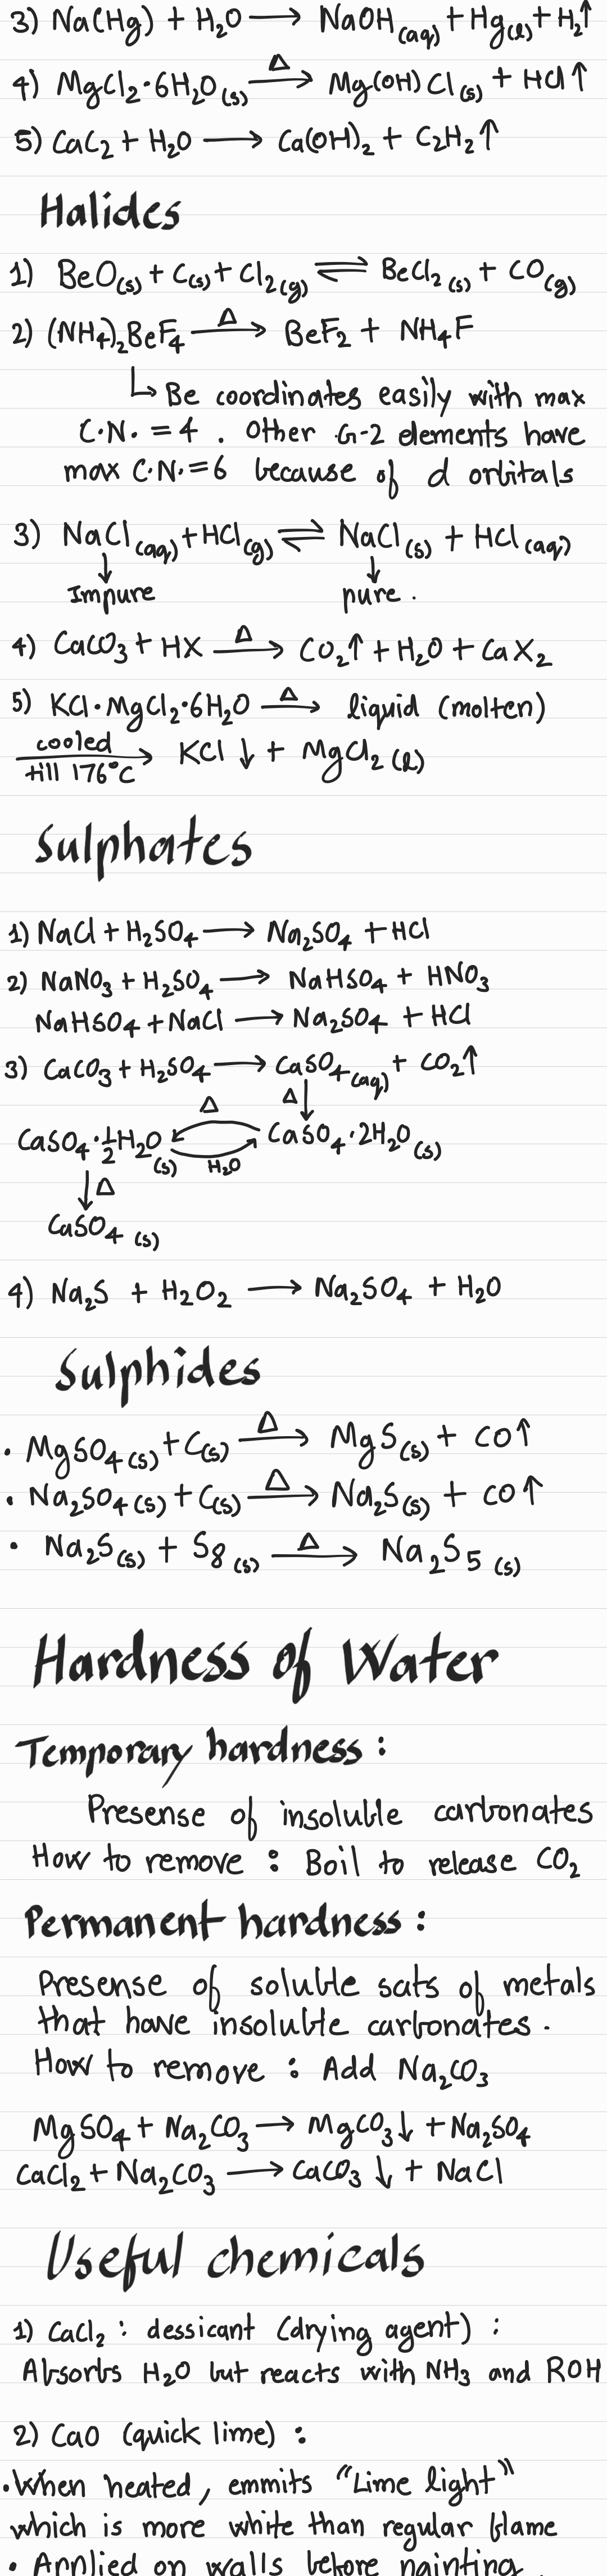 3) Na(Hg) + H₂O ⟶ NaOH(aq) + Hg(l) + H₂↑
4) MgCl₂·6H₂O(s) —Δ→ Mg(OH)Cl(s) + HCl↑
5) CaC₂ + H₂O ⟶ Ca(OH)₂ + C₂H₂↑
Halides
1) BeO(s) + C(s) + Cl₂(g) ⇌ BeCl₂(s) + CO(g)
2) (NH₄)₂BeF₄ —Δ→ BeF₂ + NH₄F
↳ Be coordinates easily with max
C.N. = 4 . Other G-2 elements have
max C.N. = 6 because of d orbitals
3) NaCl(aq) + HCl(g) ⇌ NaCl(s) + HCl(aq)
↓ ↓
Impure pure .
4) CaCO₃ + HX —Δ→ CO₂↑ + H₂O + CaX₂
5) KCl·MgCl₂·6H₂O —Δ→ liquid (molten)
cooled till 176°C → KCl ↓ + MgCl₂(l)
Sulphates
1) NaCl + H₂SO₄ ⟶ Na₂SO₄ + HCl
2) NaNO₃ + H₂SO₄ ⟶ NaHSO₄ + HNO₃
NaHSO₄ + NaCl ⟶ Na₂SO₄ + HCl
3) CaCO₃ + H₂SO₄ ⟶ CaSO₄(aq) + CO₂↑
Δ Δ↓
CaSO₄·½H₂O(s) ⇌ CaSO₄·2H₂O(s)
H₂O
↓Δ
CaSO₄(s)
4) Na₂S + H₂O₂ ⟶ Na₂SO₄ + H₂O
Sulphides
• MgSO₄(s) + C(s) —Δ→ MgS(s) + CO↑
• Na₂SO₄(s) + C(s) —Δ→ Na₂S(s) + CO↑
• Na₂S(s) + S₈(s) —Δ→ Na₂S₅(s)
Hardness of Water
Temporary hardness :
Presense of insoluble carbonates
How to remove : Boil to release CO₂
Permanent hardness :
Presense of soluble sats of metals
that have insoluble carbonates.
How to remove : Add Na₂CO₃
MgSO₄ + Na₂CO₃ ⟶ MgCO₃↓ + Na₂SO₄
CaCl₂ + Na₂CO₃ ⟶ CaCO₃↓ + NaCl
Useful chemicals
1) CaCl₂ : dessicant (drying agent) :
Absorbs H₂O but reacts with NH₃ and ROH
2) CaO (quick lime) :
• When heated, emmits "Lime light"
which is more white than regular flame
• Applied on walls before painting